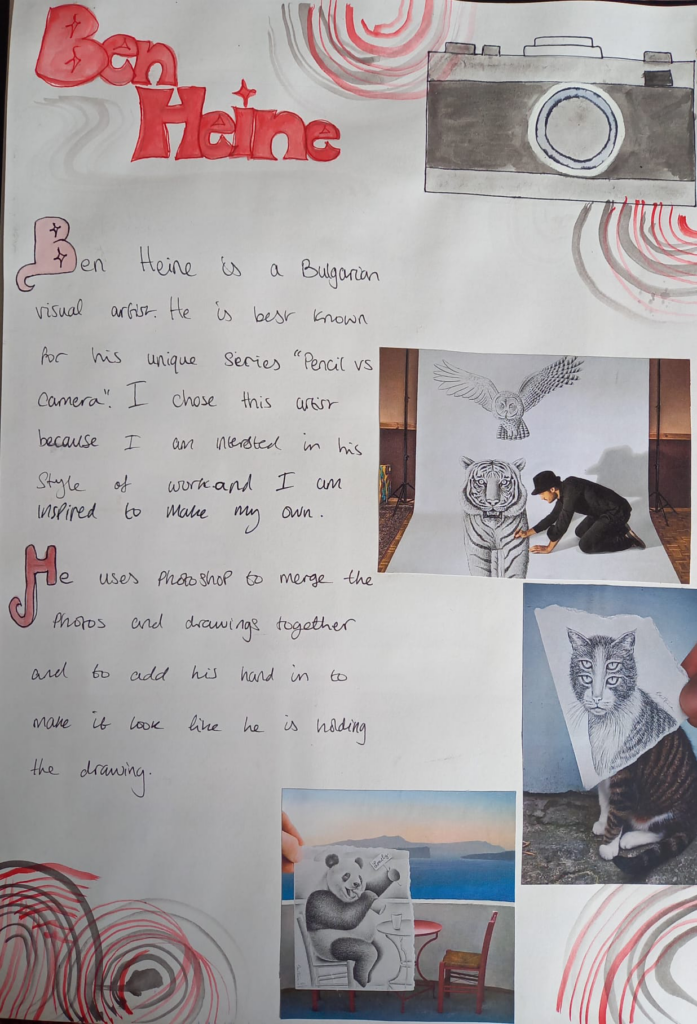 Ben
Heine
Ben Heine is a Bulgarian
visual artist. He is best known
for his unique series "Pencil vs
Camera". I chose this artist
because I am intersted in his
style of work and I am
inspired to make my own.
He uses photoshop to merge the
photos and drawings together
and to add his hand in to
make it look like he is holding
the drawing.